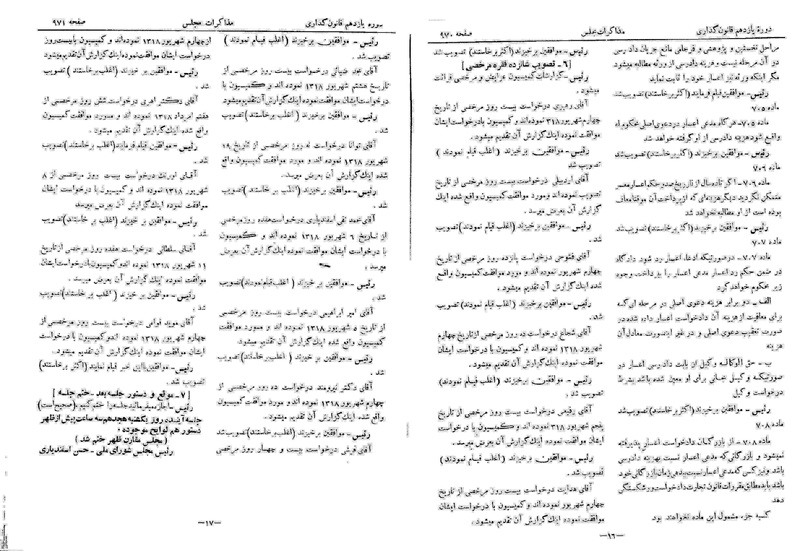 دورهٔ یازدهم قانون‌گذاری
مذاکرات مجلس
صفحه ۹۷۰
مراحل نخستین و پژوهشی و فرجامی مانع جریان دادرسی
در آن مرحله نیست و هزینه دادرسی از ورثه مطالبه میشود
مگر اینکه ورثه نیز اعسار خود را ثابت نماید
رئیس - موافقین قیام فرمایند (اکثر برخاستند) تصویب شد
ماده ۷۰۵
ماده ۷۰۵- هرگاه مدعی اعسار در دعوی اصلی محکوم‌له
واقع شود هزینه دادرسی از او گرفته خواهد شد
رئیس - موافقین برخیزند (اکثر برخاستند) تصویب شد
ماده ۷۰۶
ماده ۷۰۶- اگر تا ده سال از تاریخ صدور حکم اعسار معسر
متمکن نگردید دیگر هزینه‌ای که از پرداخت آن موقتا معاف
بوده است از او مطالبه نخواهد شد
رئیس - موافقین برخیزند (اکثر برخاستند) تصویب شد
ماده ۷۰۷
ماده ۷۰۷- در صورتیکه ادعاء اعسار رد شود دادگاه
در ضمن حکم رد اعسار مدعی اعسار را بپرداخت وجوه
زیر محکوم خواهد کرد
الف - دو برابر هزینه دعوی اصلی در مرحله‌ای که
برای معافیت از هزینه آن دادخواست اعسار داده شده در
صورت تعقیب دعوی اصلی و در غیر اینصورت معادل آن
هزینه
ب - حق‌الوکاله وکیل از بابت دادرسی اعسار در
صورتیکه وکیل مجانی برای او معین شده باشد بشرط
درخواست وکیل
رئیس - موافقین برخیزند (اکثر برخاستند) تصویب شد
ماده ۷۰۸
ماده ۷۰۸- از بازرگانان دادخواست اعسار پذیرفته
نمیشود و بازرگانی که مدعی اعسار نسبت بهزینه دادرسی
باشد و نیز کسی که مدعی اعسار نسبت ببدهی زمان بازرگانی خود
باشد باید مطابق مقررات قانون تجارت دادخواست ورشکستگی
کسبه جزء مشمول این ماده نخواهند بود
رئیس - موافقین برخیزند (اکثر برخاستند) تصویب شد
[۶ - تصویب شانزده فقره مرخصی]
رئیس - گزارشات کمیسیون عرایض و مرخصی قرائت
میشود.
آقای رهبری درخواست بیست روز مرخصی از تاریخ
چهارم شهریور ۱۳۱۸ نموده‌اند و کمیسیون بادرخواست ایشان
موافقت نموده اینک گزارش آن تقدیم میشود.
رئیس - موافقین برخیزند (اغلب قیام نمودند)
تصویب شد
آقای اردبیلی درخواست بیست روز مرخصی از تاریخ
شهریور ۱۳۱۸ نموده‌اند و مورد موافقت کمیسیون واقع شده اینک
گزارش آن بعرض میرسد.
رئیس - موافقین برخیزند (اغلب قیام نمودند)
تصویب شد
آقای فتوحی درخواست پانزده روز مرخصی از تاریخ
چهارم شهریور ۱۳۱۸ نموده‌اند و مورد موافقت کمیسیون واقع
شده اینک گزارش آن تقدیم میشود.
رئیس - موافقین برخیزند (اغلب قیام نمودند) تصویب
شد.
آقای شجاع درخواست ده روز مرخصی از تاریخ چهارم
شهریور ۱۳۱۸ نموده‌اند و کمیسیون با درخواست ایشان موافقت
نموده اینک گزارش آن تقدیم میشود.
رئیس - موافقین برخیزند (اغلب قیام نمودند)
تصویب شد
آقای درخواست بیست روز مرخصی از تاریخ
پنجم شهریور ۱۳۱۸ نموده‌اند و کمیسیون با درخواست
ایشان موافقت نموده اینک گزارش آن تقدیم میشود.
رئیس - موافقین برخیزند (اغلب قیام نمودند)
تصویب شد.
آقای هدایت درخواست بیست روز مرخصی از تاریخ
چهارم شهریور ۱۳۱۸ نموده‌اند و کمیسیون با درخواست ایشان
موافقت نموده اینک گزارش آن تقدیم میشود.
—۱۶—
دوره یازدهم قانون‌گذاری
مذاکرات مجلس
صفحه ۹۷۱
رئیس - موافقین برخیزند (اغلب قیام نمودند)
تصویب شد
آقای مجد ضیائی درخواست بیست روز مرخصی از
تاریخ هشتم شهریور ۱۳۱۸ نموده‌اند و کمیسیون با
درخواست ایشان موافقت نموده اینک گزارش آن تقدیم میشود
رئیس - موافقین برخیزند (اغلب برخاستند) تصویب
شد.
آقای توانا درخواست ده روز مرخصی از تاریخ ۱۹
شهریور ۱۳۱۸ نموده‌اند و مورد موافقت کمیسیون واقع
شده اینک گزارش آن تقدیم میشود.
رئیس - موافقین برخیزند (اغلب برخاستند) تصویب
شد.
آقای محمد تقی اسفندیاری درخواست هفده روز مرخصی
از تاریخ ۶ شهریور ۱۳۱۸ نموده‌اند و کمیسیون
با درخواست ایشان موافقت نموده اینک گزارش آن بعرض
میرسد.
رئیس - موافقین برخیزند (اغلب قیام نمودند) تصویب
شد.
آقای امیر ابراهیمی درخواست بیست روز مرخصی
از تاریخ ۵ شهریور ۱۳۱۸ نموده‌اند و مورد موافقت
کمیسیون واقع شده اینک گزارش آن تقدیم میشود.
رئیس - موافقین برخیزند (اغلب قیام نمودند) تصویب
شد.
آقای دکتر نیرومند درخواست ده روز مرخصی از
تاریخ چهارم شهریور ۱۳۱۸ نموده و مورد موافقت کمیسیون
واقع شده اینک گزارش آن تقدیم میشود.
رئیس - موافقین برخیزند (اغلب برخاستند) تصویب شد
آقای قرشی درخواست بیست و چهار روز مرخصی
از چهارم شهریور ۱۳۱۸ نموده‌اند و کمیسیون با بیست روز
درخواست ایشان موافقت نموده اینک گزارش آن تقدیم میشود
رئیس - موافقین برخیزند (اغلب برخاستند) تصویب
شد.
آقای دکتر اهری درخواست شش روز مرخصی از
هفتم امرداد ۱۳۱۸ نموده‌اند و مورد موافقت کمیسیون
واقع شده اینک گزارش آن تقدیم میشود.
رئیس - موافقین قیام فرمایند (اغلب برخاستند) تصویب
شد.
آقای اورنگ درخواست بیست روز مرخصی از ۸
شهریور ۱۳۱۸ نموده‌اند و کمیسیون با درخواست ایشان
موافقت نموده اینک گزارش آن بعرض میرسد.
رئیس - موافقین برخیزند (اغلب برخاستند) تصویب
شد.
آقای سلطانی درخواست هفده روز مرخصی از تاریخ
۱۱ شهریور ۱۳۱۸ نموده‌اند و کمیسیون با درخواست ایشان
موافقت نموده اینک گزارش آن بعرض میرسد.
رئیس - موافقین برخیزند (اغلب برخاستند) تصویب
شد.
آقای موید قوامی درخواست بیست روز مرخصی از تاریخ
چهارم شهریور ۱۳۱۸ نموده‌اند و کمیسیون با درخواست
ایشان موافقت نموده اینک گزارش آن تقدیم میشود.
رئیس - موافقین با این خبر قیام نمایند (اکثر برخاستند)
تصویب شد
[۷ - موقع و دستور جلسه بعد - ختم جلسه]
رئیس - اجازه میفرمائید جلسه را ختم کنیم (صحیح است)
جلسه آینده روز یکشنبه هجدهم سه ساعت پیش از ظهر
دستور هم لوایح موجوده.
(مجلس مقارن ظهر ختم شد)
رئیس مجلس شورای ملی - حسن اسفندیاری
—۱۷—